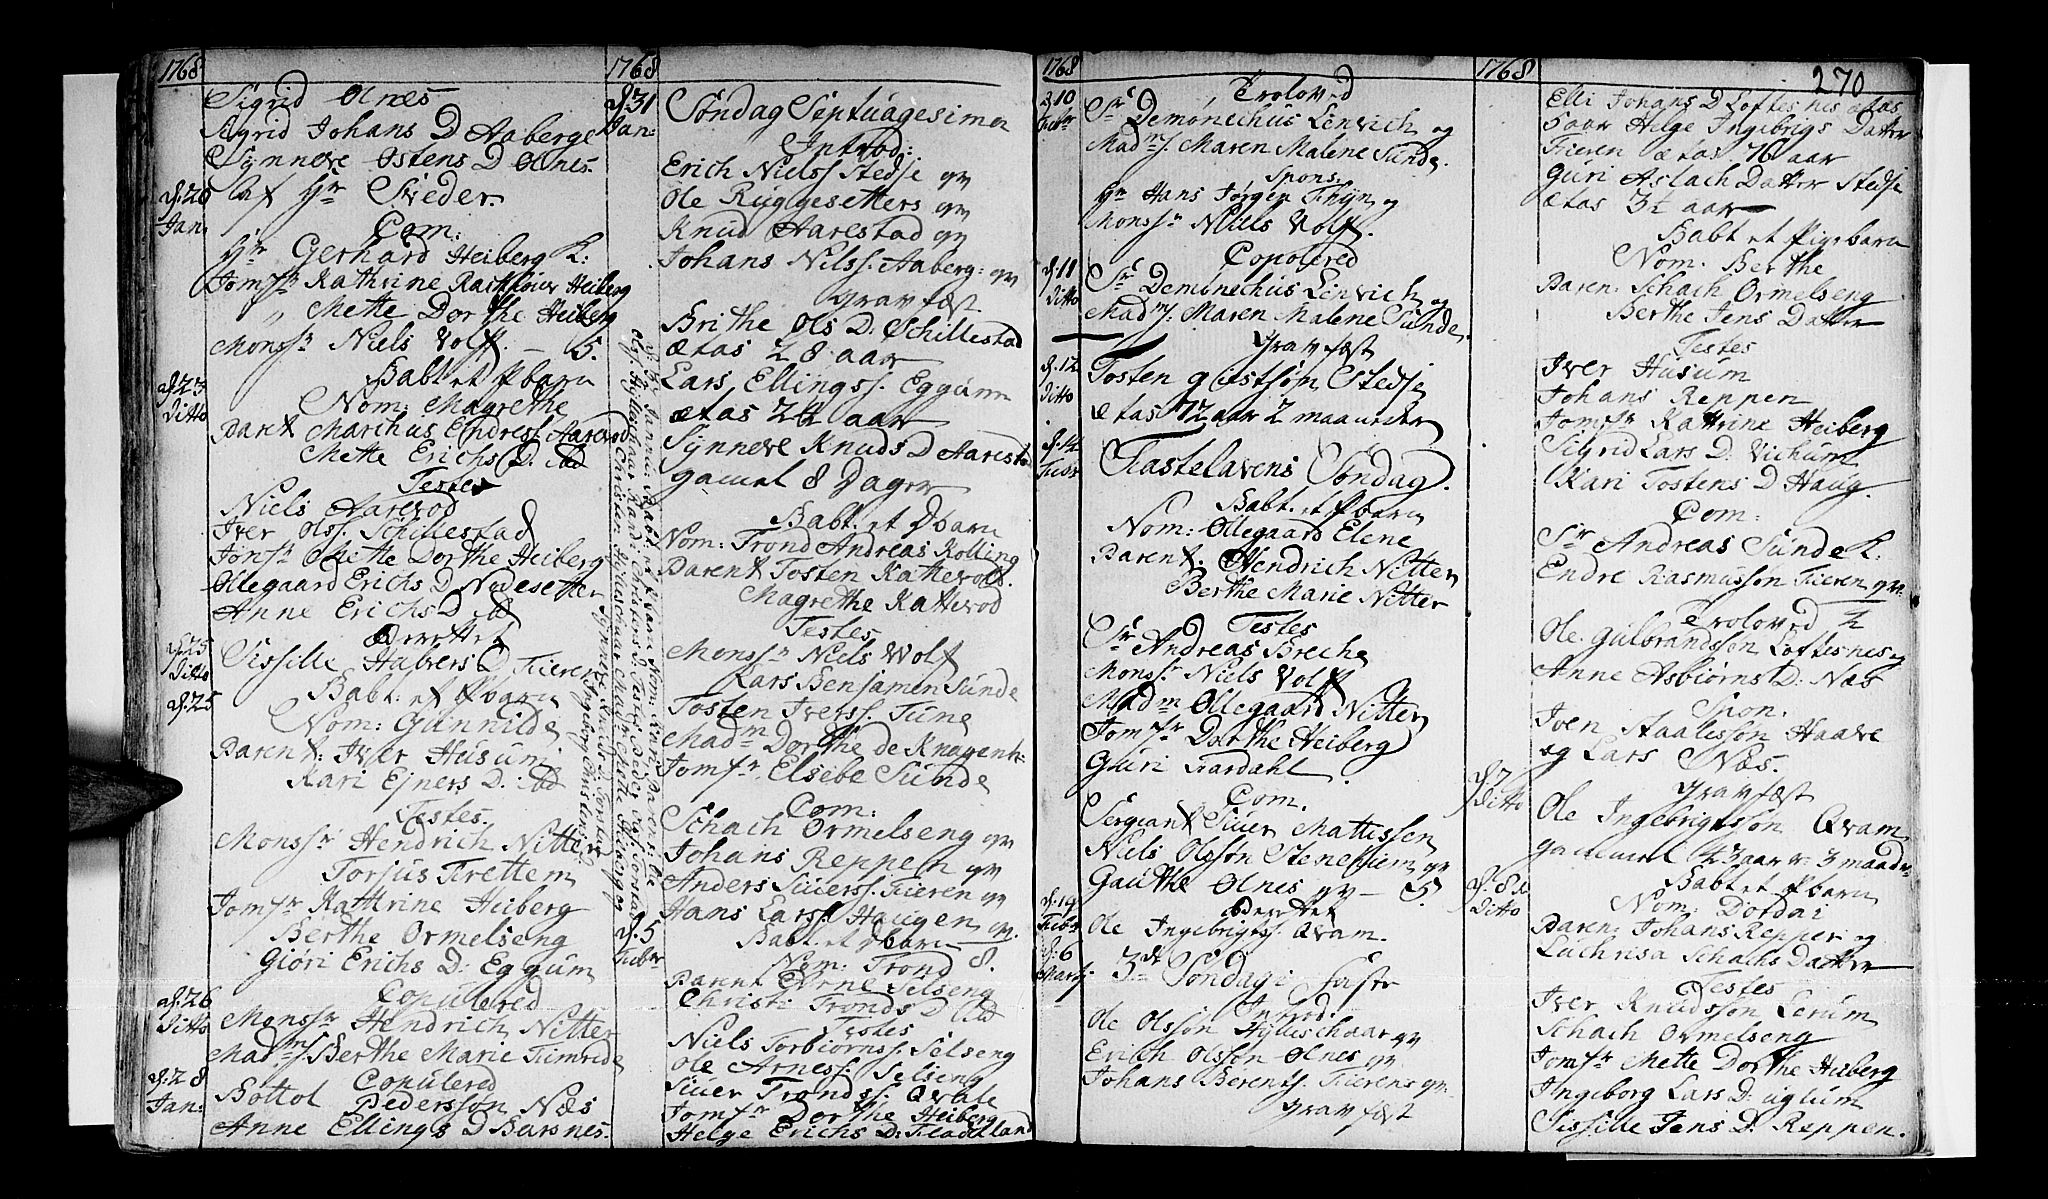 1768
Sigrid Olnes
Sigrid Johans D Aaberge
Synneve Ostens D Olnes.
d. 20 Jan: af Hr Sveder.
Com:
Hr Gerhard Heiberg K:
Jomfr Kathrine Heiberg
" Mette Dorthe Heiberg
Monsr Niels Wolff. — 5.
Babt. et Pbarn
d. 23 Ditto Nom: Magrethe
Parent Marchus Endress. Aarevod
Mette Erichs D. ibd
Testes
Niels Aarevod
Iver Olss. Schillestad
Jomfr Mette Dorthe Heiberg
Ollegaard Erichs D Nedesetter
Anne Erichs D ibd
Berettet
d. 25 Ditto Sissille Halvers D Fieren
d. 25 Babt: et Pbarn
Nom: Gunnilde
Parent: Iver Husum
Kari Ejners D: ibd
Testes.
Monsr Hendrich Nitter
Torjus Frettem
Jomfr Kathrine Heiberg
Berthe Ormelseng
Giöri Erichs D: Eggum
Copulered
d. 26 Ditto Monsr Hendrich Nitter
Madms Berthe Marie Fimreide
d. 28 Jan: Copulered
Bottol Pedersson Næs
Anne Ellings D Barsnes.
1768
d. 31 Jan: Søndag Septuagesima
Introd:
Erich Nielss Stedje qv
Ole Ruggesetters qv
Knud Aarestad qv
Johans Nilss. Aaberg: qv
Gravfæst
Brithe Ols D: Schillestad
ætas 28 aar
Lars Ellingss. Eggum
ætas 24 aar
Synneve Knuds D Aarestad
gamel 8 Dager
Babt. et Dbarn
Nom: Trond Andreas Kolling
Parent Tosten Kattevold.
Magrethe Kattevod
Testes
Monsr Niels Wolf
Lars Benjamen Sunde
Tosten Iverss. Fune
Madm Dorthe de Knagenh:
Jomfr Elsebe Sunde
Com:
Schach Ormelseng qv
Johans Reppen qv
Anders Siverss. Fieren qv
Hans Larss. Haugen qv.
8.
d. 5 Febr Babt. et Dbarn
Nom: Trond
Parent Arne Selseng
Christi Tronds D ibd
Testes
Niels Torbiörnss. Selseng
Ole Arness. Selseng
Siver Trondss. Qvale
Jomfr Dorthe Heiberg
Helge Erichs D: Fladeland
1768
d. 10 Febr Troloved
Sr Demonichus Lenvich og
Madms. Maren Malene Sunde.
Spons:
Hr Hans Jørgen Thyn og
Monsr Niels Wolf.
Copolered
d. 11 Ditto Sr Demonichus Lenvich og
Madms. Maren Malene Sunde
Gravfæst
d. 12 Ditto Tosten giestsøn Stedje
ætas 72 aar 2 maaneder
d. 14 Febr Fastelavens Søndag.
Babt. et Pbarn
Nom: Ollegaard Elene
Parent. Hendrich Nitter
Berthe Marie Nitter
Testes
Sr Andreas Breche
Monsr Niels Wolf
Madm Ollegaard Nitter
Jomfr Dorthe Heiberg
Guri Fardahl
Com.
Sergeant Siver Mattissen
Niels Olssøn Stenehiem qv
Gauthe Olnes qv — 5.
d. 19 Febr Berettet
Ole Ingebrigtss. Qvam.
d. 6 Martj 3de Søndag i Faste
Introd.
Ole Olssøn Hylleschaar qv
Erich Olssøn Olnes qv
Johans Berentss. Fierens qv.
Gravfæst
1768
270
Elli Johans D Loftesnes ætas
5 aar Helge Ingebrigs Datter
Fieren ætas 76 aar
Guri Aslach Datter Stedje
ætas 34 aar
Babt et Pigebarn
Nom. Berthe
Paren: Schach Ormelseng
Berthe Jens Datter
Testes
Iver Husum
Johans Reppen
Jomfr Kathrine Heiberg
Sigrid Lars D: Vichum
Kari Tostens D Haug.
Com:
Sr Andreas Sunde K:
Endre Rasmusson Fieren qv.
2
Troloved
Ole Gulbrandssøn Loftesnes og
Anne Asbiörns D: Næs
Spon.
Iven Staalessøn Haave
og Lars Næs.
d. 7 Ditto Gravfæst
Ole Ingebrigtssøn Qvam
gammel 43 aar 3 maader
d. 8 Ditto Babt et Pbarn
Nom: Dordai
Paren: Johans Reppen og
Luchrisa Schachs Datter
Testes
Iver Knudssøn Lerum
Schach Ormelseng
Jomfr Mette Dorthe Heiberg
Ingeborg Lars D: Uglum
Sissille Jens D. Reppen.